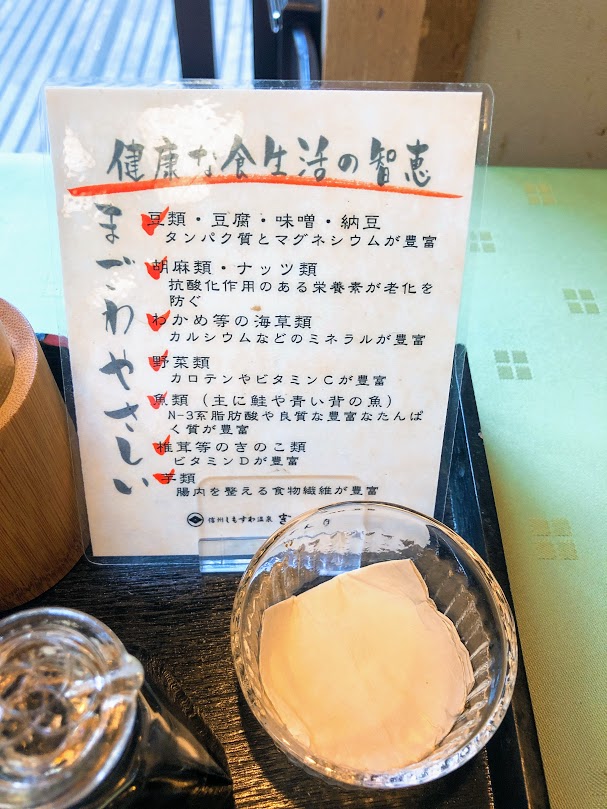 健康な食生活の智恵
まごわやさしい
豆類・豆腐・味噌・納豆
タンパク質とマグネシウムが豊富
胡麻類・ナッツ類
抗酸化作用のある栄養素が老化を
防ぐ
わかめ等の海草類
カルシウムなどのミネラルが豊富
野菜類
カロテンやビタミンCが豊富
魚類（主に鮭や青い背の魚）
N-3系脂肪酸や良質な豊富なたんぱ
く質が豊富
椎茸等のきのこ類
ビタミンDが豊富
芋類
腸内を整える食物繊維が豊富
信州しもすわ温泉